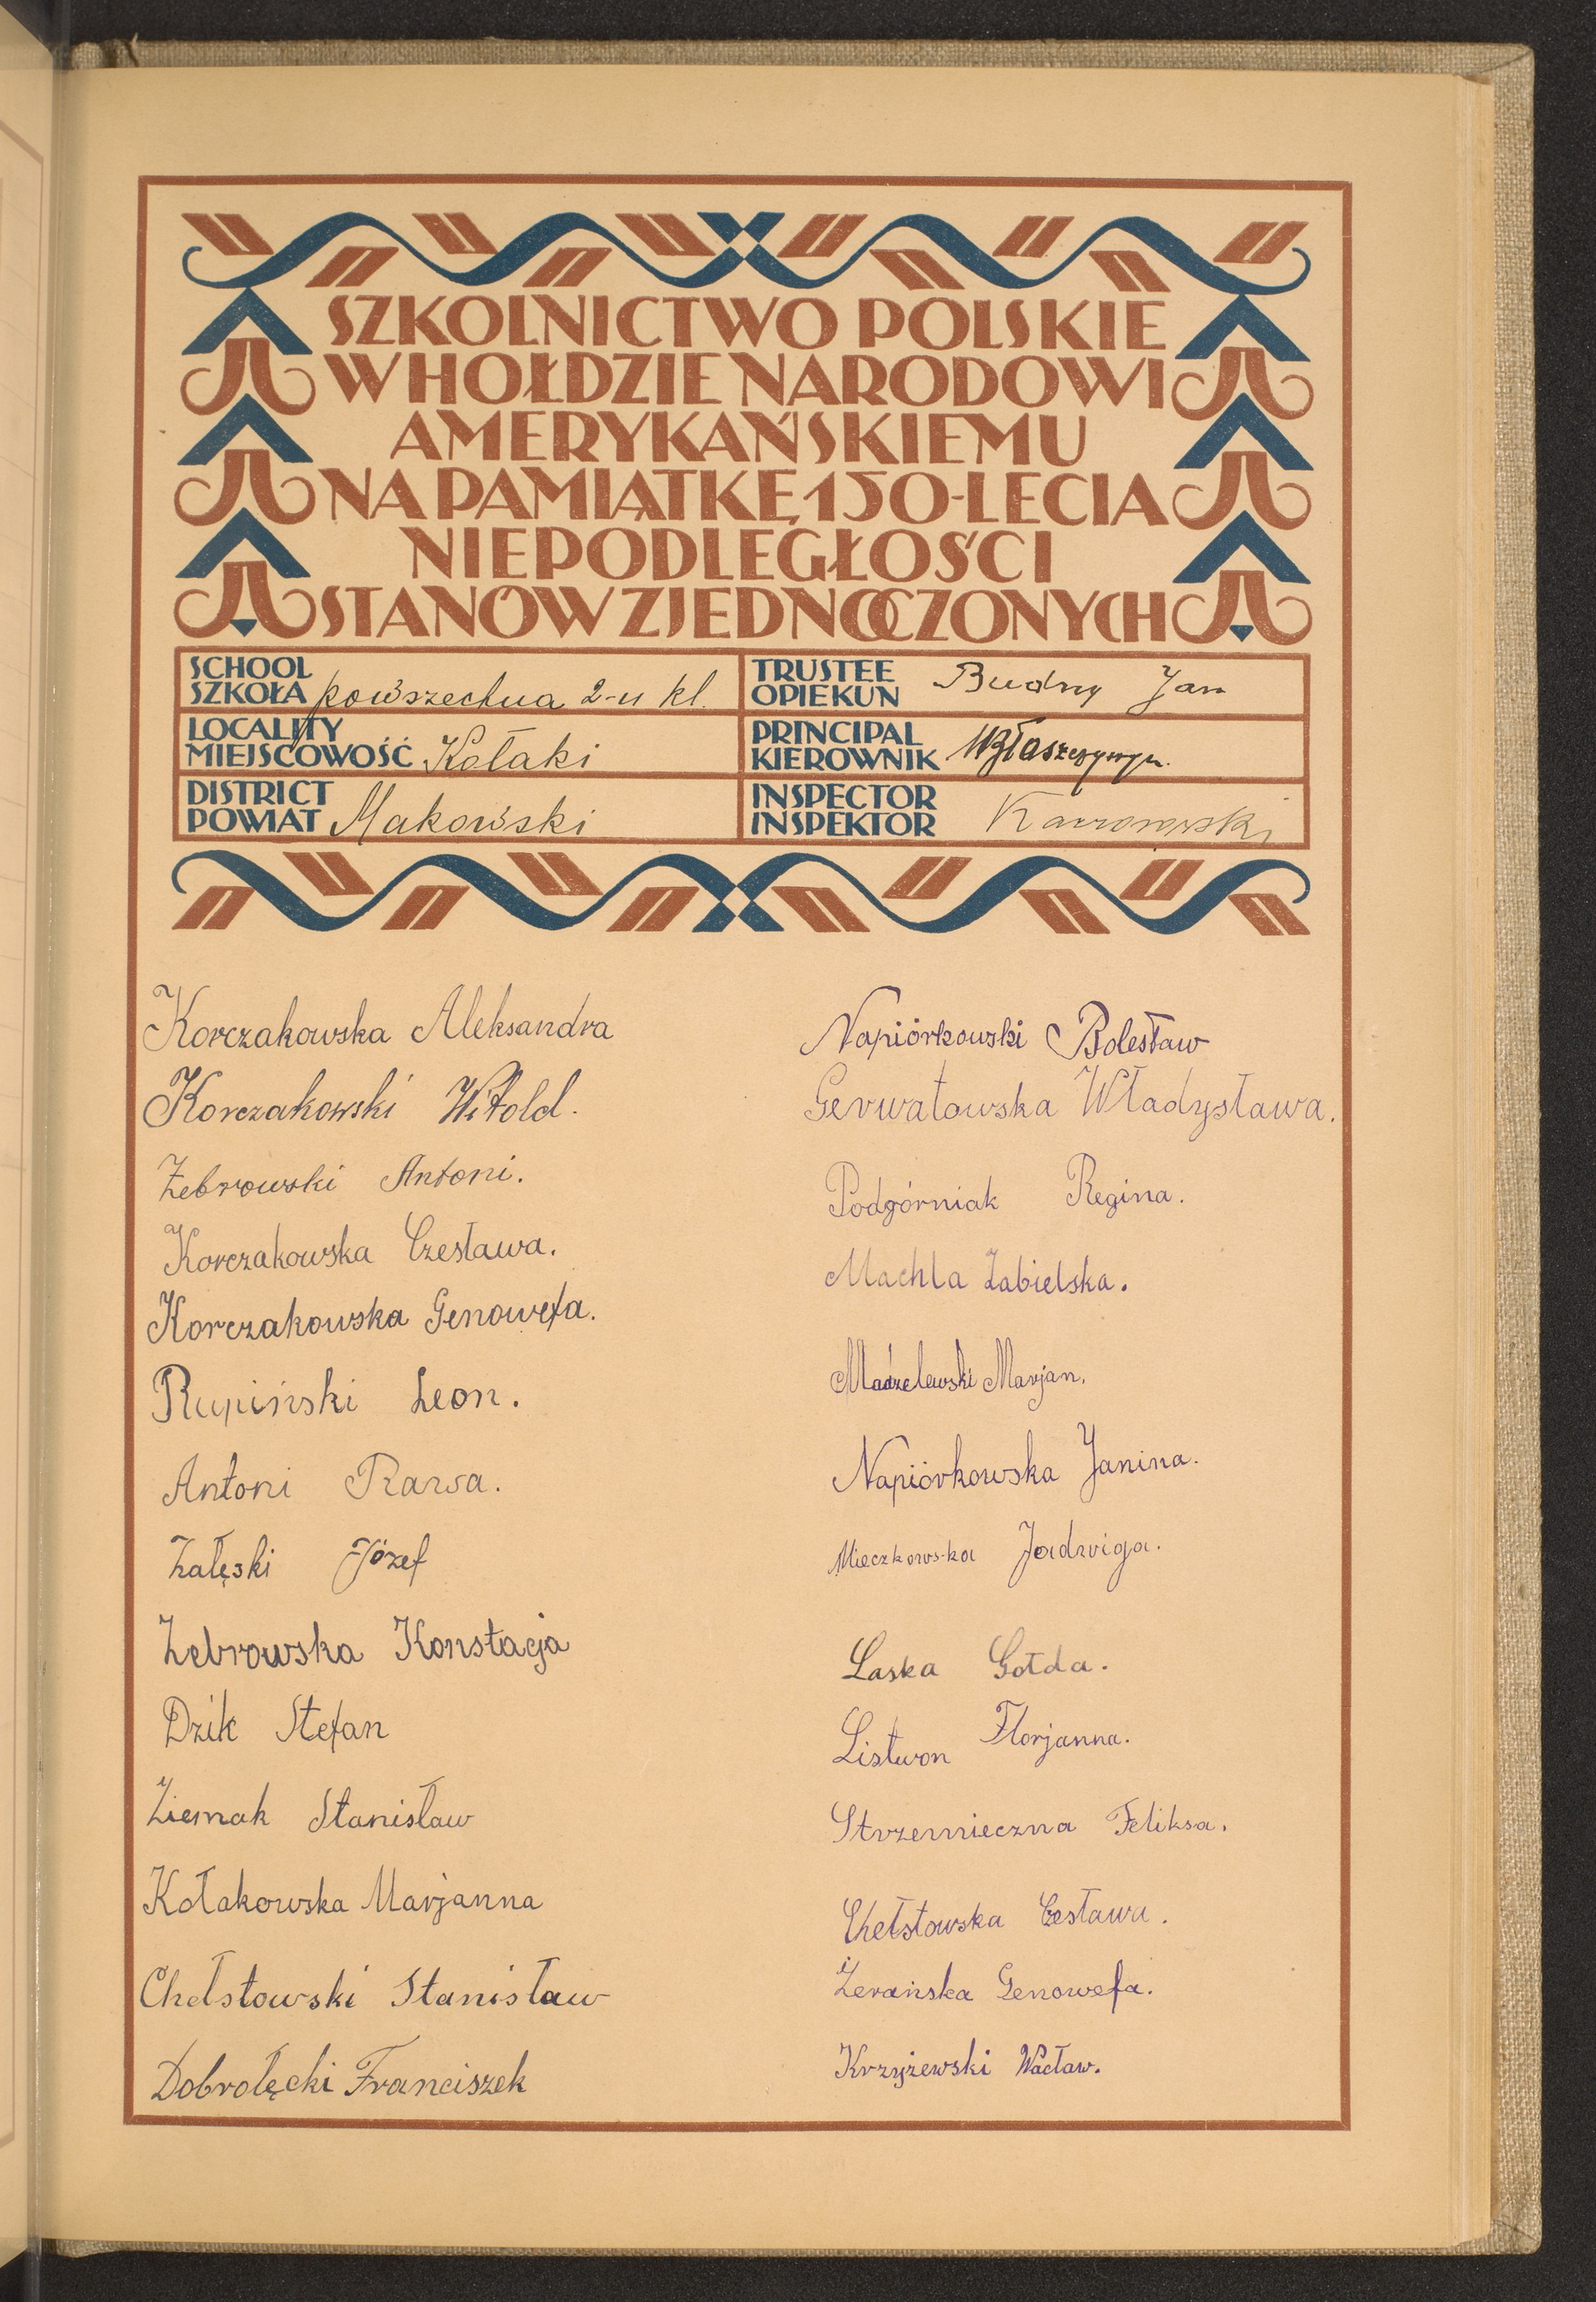 SZKOLNICTWO POLSKIE
W HOŁDZIE NARODOWI
AMERYKAŃSKIEMU
NA PAMIĄTKĘ 150-LECIA
NIEPODLEGŁOŚCI
STANÓW ZJEDNOCZONYCH
SCHOOL
SZKOŁA powszechna 2-u kl.
LOCALITY
MIEJSCOWOŚĆ Kołaki
DISTRICT
POWIAT Makowski
TRUSTEE
OPIEKUN Budny Jan
PRINCIPAL
KIEROWNIK
INSPECTOR
INSPEKTOR
Korczakowska Aleksandra
Korczakowski Witold.
Żebrowski Antoni.
Korczakowska Czesława.
Korczakowska Genowefa.
Rupiński Leon.
Antoni Rawa.
Załęski Józef
Żebrowska Konstacja
Dzik Stefan
Ziemak Stanisław
Kołakowska Marjanna
Chełstowski Stanisław
Dobrołęcki Franciszek
Napiórkowski Bolesław
Gerwatowska Władysława.
Podgórniak Regina.
Machla Zabielska.
Madzelewski Marjan.
Napiórkowska Janina.
Mieczkowska Jadwiga.
Laska Gołda.
Listwon Florjanna.
Strzemieczna Feliksa.
Chełstowska Czesława.
Żerańska Genowefa.
Krzyżewski Wacław.